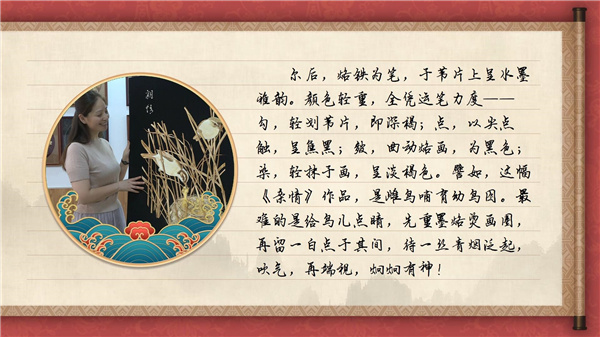 親情
尔后，烙铁为笔，于苇片上呈水墨
雅韵。颜色轻重，全凭运笔力度——
勾，轻划苇片，即深褐；点，以尖点
触，呈焦黑；皴，曲动烙画，为黑色；
染，轻抹于画，呈淡褐色。譬如，这幅
《亲情》作品，是雌鸟哺育幼鸟图。最
难的是给鸟儿点睛，先重墨烙烫画圈，
再留一白点于其间，待一丝青烟泛起，
吹气，再端视，炯炯有神！